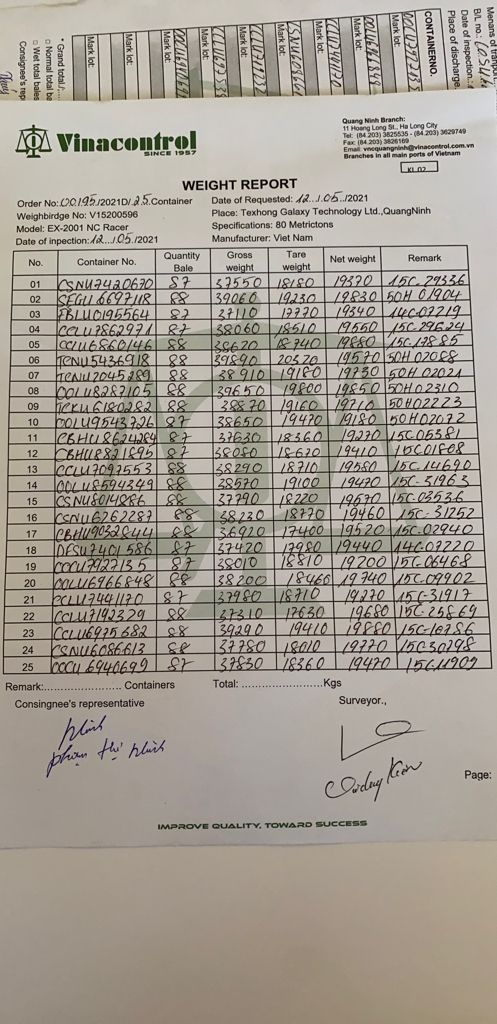 CONTAINERNO.
Mark lot:
Mark lot:
Mark lot:
Mark lot:
Mark lot:
Mark lot:
Place of discharge
B/L no.:
* Grand total
□ Normal total ba
□ Wet total bales
Consignee's rep
Vinacontrol
SINCE 1957
Quang Ninh Branch:
11 Hoang Long St., Ha Long City
Tel: (84.203) 3825535 - (84.203) 3629749
Fax: (84.203) 3826169
Email: vncquangninh@vinacontrol.com.vn
Branches in all main ports of Vietnam
KI.02
WEIGHT REPORT
Order No: 00195/2021D/ 25 Container
Date of Requested: 12 / 05 /2021
Weighbirdge No: V15200596
Place: Texhong Galaxy Technology Ltd.,QuangNinh
Model: EX-2001 NC Racer
Specifications: 80 Metrictons
Date of inpection: 12 / 05 /2021
Manufacturer: Viet Nam
No. Container No. Quantity Bale Gross weight Tare weight Net weight Remark
01 CSNU7420670 87 37550 18180 19370 15C-29336
02 SEGU6697118 88 39060 19230 19830 50H 01904
03 FBLU0195564 87 37110 17770 19340 14C-07219
04 CCLU7862971 87 38060 18510 19550 15C-29624
05 CCLU6860146 88 38620 18740 19880 15C-17885
06 TCNU5436918 88 39890 20320 19570 50H 02088
07 TCNU2045289 88 38910 19180 19730 50H 02021
08 OOLU8287105 88 39650 19800 19850 50H 02310
09 TCKU6180282 88 38870 19160 19710 50H 02223
10 OOLU9543726 87 38650 19470 19180 50H 02072
11 CBHU8624284 87 37630 18360 19270 15C 05381
12 CBHU8821895 87 38030 18620 19410 15C 01808
13 CCLU7097553 88 38290 18710 19580 15C-14690
14 OOLU8594349 88 38570 19100 19470 15C-31963
15 CSNU8014886 88 37790 18220 19570 15C-03536
16 CSNU6262287 88 38230 18770 19460 15C-31252
17 CBHU9032844 88 36920 17400 19520 15C-02940
18 DFSU7401586 87 37420 17980 19440 14C-07220
19 CCCU7927135 87 38010 18810 19200 15C-06468
20 OOLU6966848 88 38200 18460 19740 15C-09902
21 CCLU7441170 87 37980 18710 19270 15C-31917
22 CCLU7192329 88 37310 17630 19680 15C-25869
23 CCLU6975682 88 39290 19410 19880 15C-16786
24 CSNU6086613 88 37780 18010 19770 15C 30298
25 87 37830 18360 19470 15C
Remark:........................ Containers Total: ........................Kgs
Consingnee's representative
Surveyor.,
phan thị
Page:
IMPROVE QUALITY, TOWARD SUCCESS